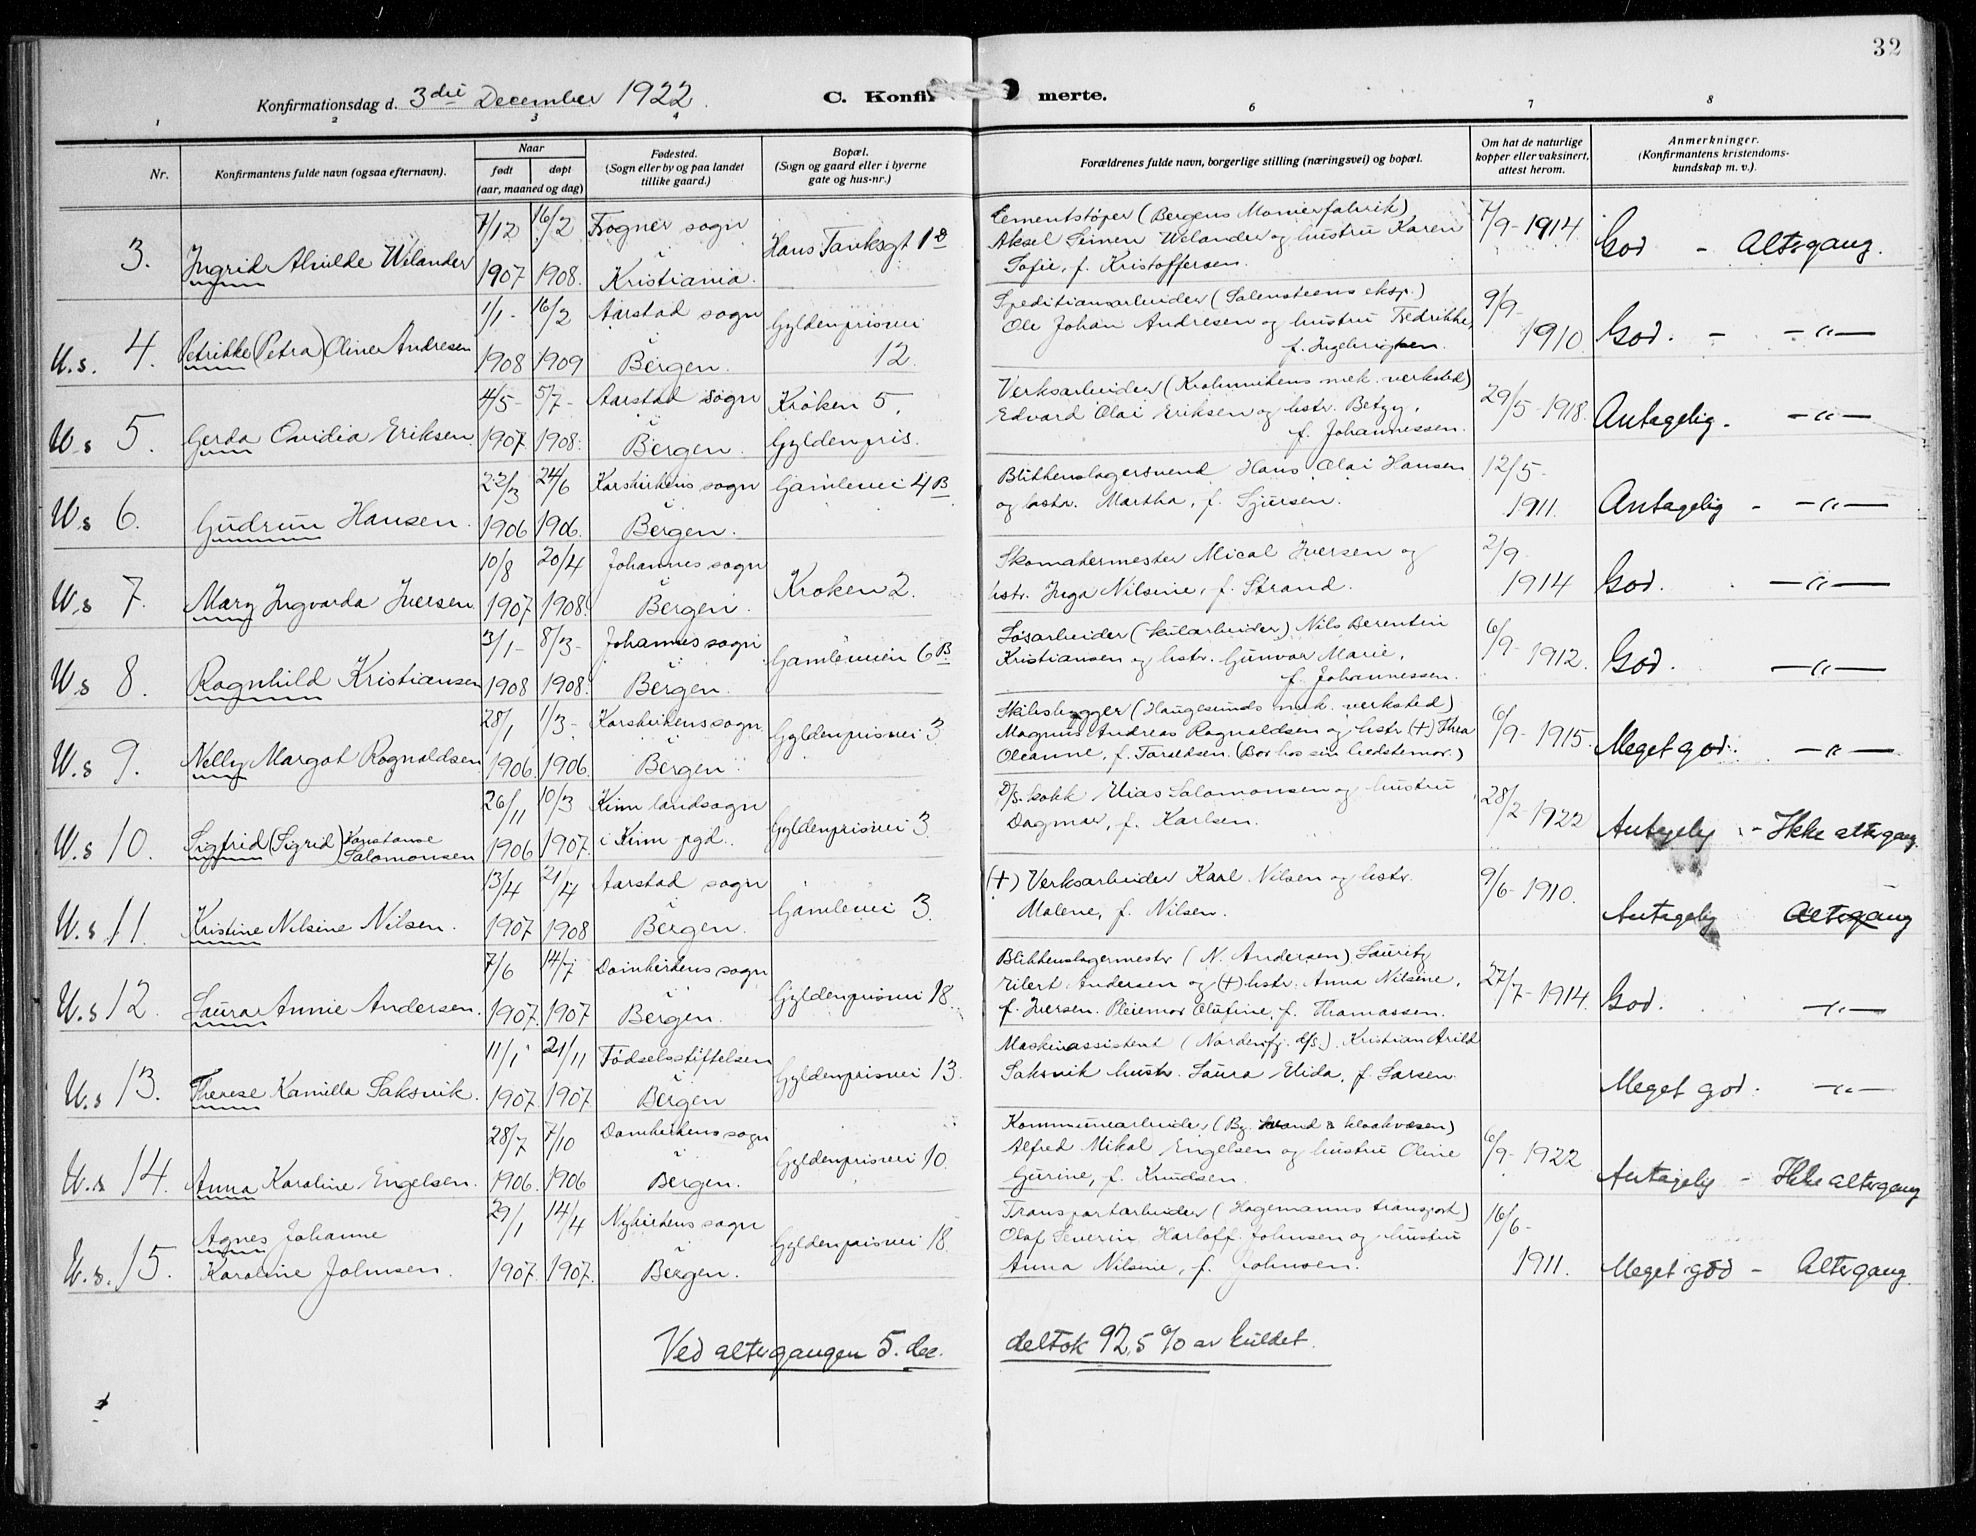 32
Konfirmationsdag d. 3die December 1922.
C. Konfirmerte.
1 2 3 4 6 7 8
Nr.
Konfirmantens fulde navn (ogsaa efternavn).
Naar
født døpt
(aar, maaned og dag)
Fødested.
(Sogn eller by og paa landet
tillike gaard.)
Bopæl.
(Sogn og gaard eller i byerne
gate og hus-nr.)
Forældrenes fulde navn, borgerlige stilling (næringsvei) og bopæl.
Om hat de naturlige
kopper eller vaksinert,
attest herom.
Anmerkninger.
(Konfirmantens kristendoms-
kundskap m. v.).
3. Ingrid Alvilde Welander
7/12 1907 16/2 1908.
Frogner sogn
i
Kristiania.
Hans Tanksgt 18
Cementstøper (Bergens Monierfabrik)
Aksel Simen Welander og hustru Karen
Sofie, f. Kristoffersen.
7/9-1914
God - Altergang.
U.s. 4. Petrikke (Petra) Oline Andresen
1/1- 1908 16/2 1909
Aarstad sogn
i
Bergen.
Gyldenprisvei
12.
Speditionsarbeider (Salensteens eksp.)
Ole Johan Andresen og hustru Fredrikke,
f. Ingebrigtsen.
9/9-
1910
God. - -"-
U.s 5. Gerda Ovidia Eriksen
4/5- 1907. 5/7- 1908.
Aarstad sogn
i
Bergen.
Kroken 5,
Gyldenpris.
Verksarbeider (Krohnvikens mek. verksted)
Edvard Olai Eriksen og hstr. Betzy,
f. Johannessen.
29/5-1918.
Antagelig. -"-
U.s 6. Gudrun Hansen.
22/3 1906 24/6 1906.
Korskirkens sogn
i
Bergen.
Gamlevei 4B
Blikkenslagersvend Hans Olai Hansen
og hstr. Martha, f. Sjursen.
12/5-
1911.
Antagelig - -"-
U.s 7. Mary Ingvarda Iversen.
10/8 1907 20/4 1908.
Johannes sogn
i
Bergen.
Kroken 2.
Skomakermester Mical Iversen og
hstr. Inga Nilsine, f. Strand.
2/9-
1914
God. -"-
U.s 8. Ragnhild Kristiansen
3/1- 1908 8/3- 1908.
Johannes sogn
i
Bergen.
Gamleveien 6B
Løsarbeider (kularbeider) Nils Berentin
Kristiansen og hstr. Gunvor Marie,
f. Johannessen.
6/9-1912.
God. -"-
U.s 9. Nelly Margot Rognaldsen
28/1 1906. 1/3- 1906.
Korskirkens sogn
i
Bergen.
Gyldenprisvei 3
Skibsbygger (Haugesunds mek. verksted)
Magnus Andreas Rognaldsen og hstr (+) Thea
Oleanne, f. Taraldsen. (Bor hos sin bedstemor.)
6/9-1915.
Meget god. -"-
U.s 10. Sigfrid (Sigrid) Konstanse
Salomonsen
26/11 1906 10/3 1907.
Kinn landsogn
i Kinn pgd.
Gyldenprisvei 3.
D/S. kokk Elias Salomonsen og hustru
Dagmar, f. Karlsen.
28/2-1922
Antagelig - Ikke altergang
U.s 11. Kristine Nilsine Nilsen.
13/4 1907 21/4 1908
Aarstad sogn
i
Bergen.
Gamlevei 3.
(+) Verksarbeider Karl Nilsen og hstr.
Malene, f. Nilsen.
9/6-1910.
Antagelig Altergang
U.s 12. Laura Annie Andersen.
7/6 1907. 14/7 1907
Domkirkens sogn
i
Bergen.
Gyldenprisvei 18.
Blikkenslagermester (N. Andersen) Lauritz
Eilert Andersen og (+) hstr. Anna Nilsine,
f. Iversen. Pleiemor Olufine, f. Thomassen.
27/7-1914.
God. -"-
U.s 13. Therese Kamilla Saksvik.
11/1 1907. 21/11 1907.
Fødselsstiftelsen
i
Bergen
Gyldenprisvei 13.
Maskinassistent (Nordenfj. d/s.) Kristian Arild
Saksvik hustr. Laura Elida, f. Larsen.
Meget god. -"-
U.s 14. Anna Karoline Engelsen.
28/7 1906. 7/10 1906
Domkirkens sogn
i
Bergen.
Gyldenprisvei 10.
Kommunearbeider (By. vand & kloakvæsen)
Alfred Mikal Engelsen og hustru Oline
Gurine, f. Knudsen.
6/9-1922
Antagelig - Ikke altergang
U.s. 15. Agnes Johanne
Karoline Johnsen.
29/1 1907. 14/4 1907.
Nykirkens sogn
i
Bergen.
Gyldenprisvei 18.
Transportarbeider (Hagemanns transport)
Olaf Severin Harloff Johnsen og hustru
Anna Nilsine, f. Johnsen.
16/6-
1911.
Meget god - Altergang.
Ved altergangen 5. dec. deltok 92,5 % av kuldet.